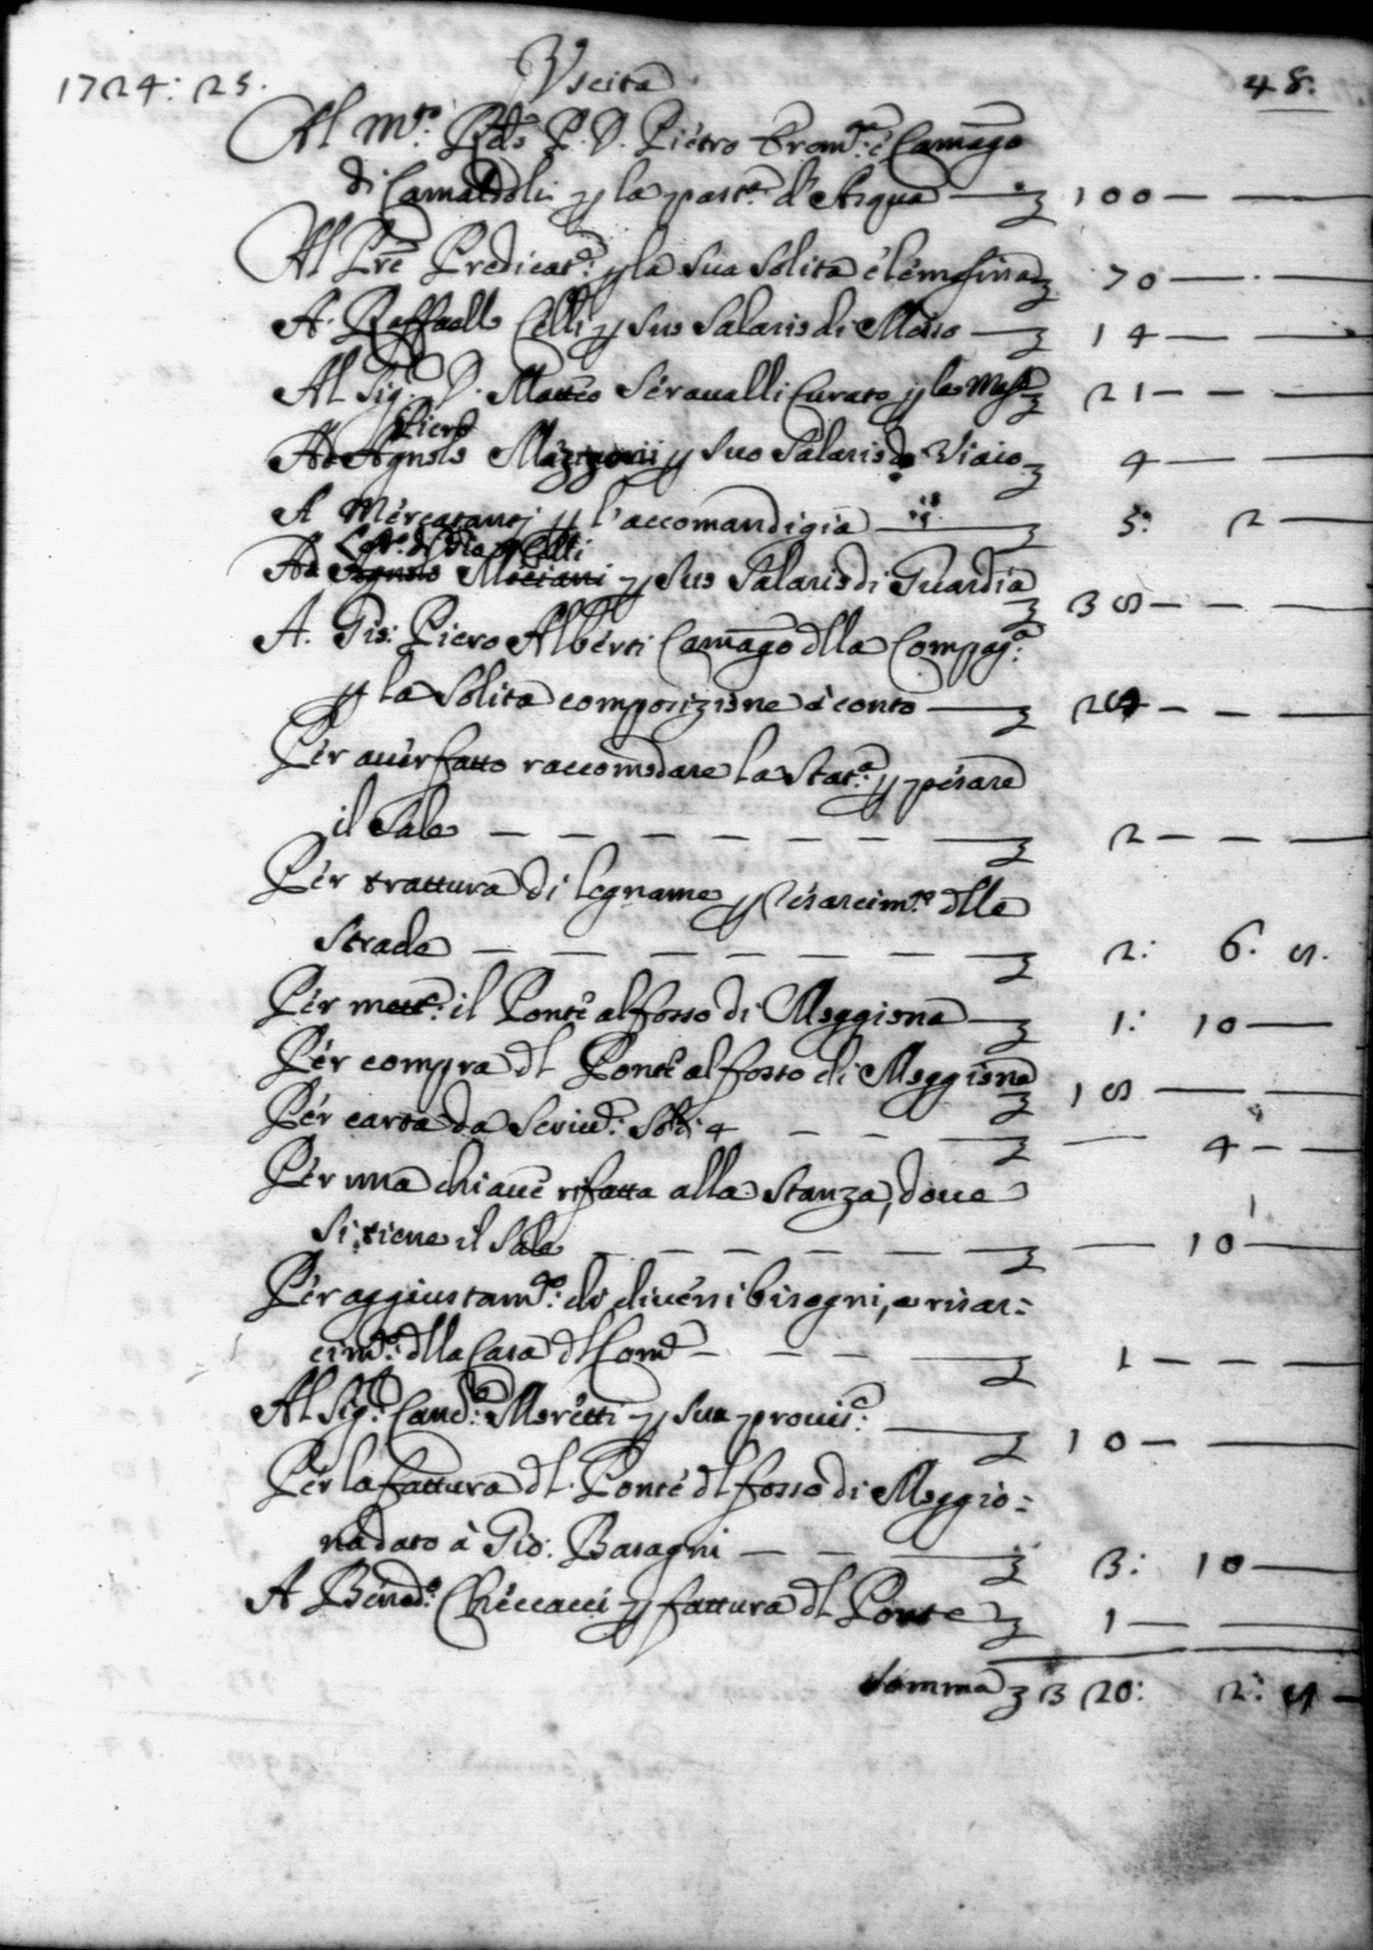 1724: 25. Uscita 48.
Al M.to R.do P. D. Pietro Camago
di Camaldoli p la part.e d'Acqua — 100 — —
Al Pre Predicat.e p la sua solita elemosina 70 — —
A. Raffaello Celli p suo salario di Messo — 14 — —
Al Sig.r D. Matteo Seravalli Curato p le Messe 21 — —
Piero
Ad Agnolo Mazzonii p suo salario di Viaio 4 — —
A Mercatanti p l'accomandigia — 5: 2 —
Celli
Ad Agnolo Miciani p suo salario di Guardia
38 — —
A. Gio: Piero Alberti Camago dlla Compag.a
p la solita composizione à conto — 24 — —
Per aver fatto raccomodare la stat.a p pesare
il sale — 2 — —
Per trattura di legname p resarcim.to dlle
strade — 2: 6. 8.
Per mett.e il Ponte al fosso di Moggiona — 1: 10 —
Per compra dl Ponte al fosso di Moggiona
18 — —
Per carta da scriv.e soldi 4 — — 4 — —
Per una chiave rifatta alla stanza, dove
si tiene il sale — — 10 —
Per aggiustam.to di diversi bisogni, e risar=
cim.to dlla Casa dl Com.e — 1 — —
Al Sig.r Canc.e Moretti p sua provis.e — 10 — —
Per la fattura dl Ponte dl fosso di Moggio=
na dato à Gio: Basagni — 3: 10 —
A Bened.o Checcacci p fattura dl Ponte 1 — —
Somma 320: 2: 8 —